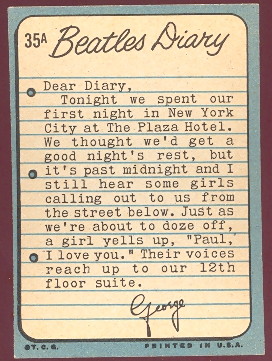 35A Beatles Diary
Dear Diary,
Tonight we spent our
first night in New York
City at The Plaza Hotel.
We thought we'd get a
good night's rest, but
it's past midnight and I
still hear some girls
calling out to us from
the street below. Just as
we're about to doze off,
a girl yells up, "Paul,
I love you." Their voices
reach up to our 12th
floor suite.
George
©T.C.G. PRINTED IN U.S.A.